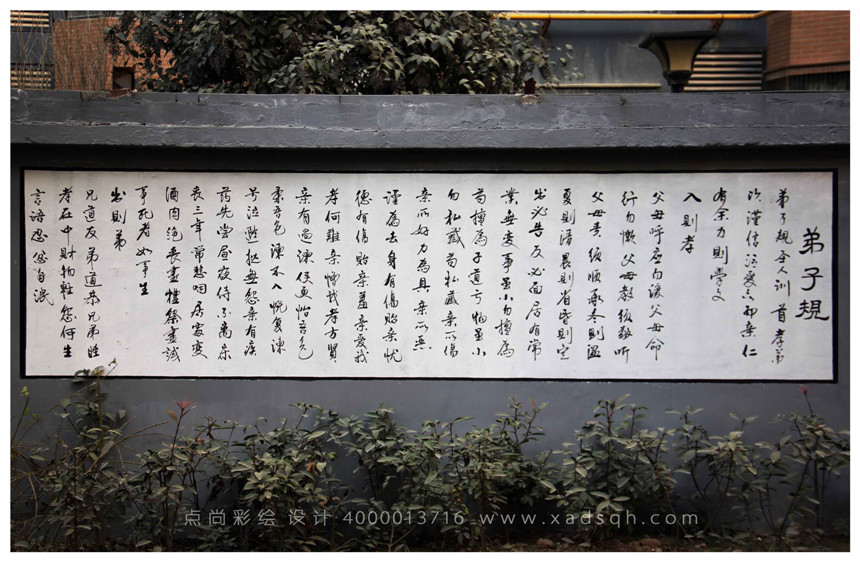 弟子規
弟子規圣人训首孝弟
次谨信泛爱众而亲仁
有余力则學文
入则孝
父母呼应勿缓父母命
行勿懒父母教须敬听
父母责须顺承冬则温
夏则清晨则省昏则定
出必告反必面居有常
業毋变事虽小勿擅為
苟擅為子道亏物虽小
勿私藏苟私藏亲心伤
亲所好力為具亲所恶
谨為去身有伤贻亲忧
德有伤贻亲羞亲爱我
孝何难亲憎我孝方贤
亲有过谏使更怡吾色
柔吾色谏不入悦复谏
号泣随挞毋怨亲有疾
药先尝昼夜侍不离床
丧三年常悲咽居处变
酒肉绝丧盡禮祭盡誠
事死者如事生
出则弟
兄道友弟道恭兄弟睦
孝在中财物轻怨何生
言语忍忿自泯
点尚彩绘 设计 4000013716 www.xadsqh.com